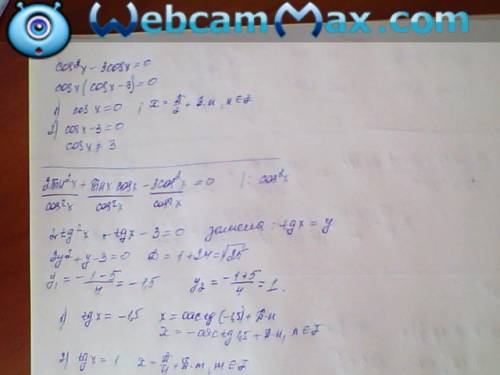 WebcamMax.com
cos²x - 3cosx = 0
cosx(cosx - 3) = 0
1) cosx = 0 ; x = π/2 + π·n, n∈Z
2) cosx - 3 = 0
cosx ≠ 3
2sin²x/cos²x + sinx cosx/cos²x - 3cos²x/cos²x = 0 |: cos²x
2tg²x + tgx - 3 = 0 замена: tgx = y
2y² + y - 3 = 0 D = 1 + 24 = √25
y₁ = -1-5/4 = -1,5 y₂ = -1+5/4 = 1.
1) tgx = -1,5 x = arctg(-1,5) + π·n
x = -arctg1,5 + π·n, n∈Z
2) tgx = 1 x = π/4 + π·m, m∈Z